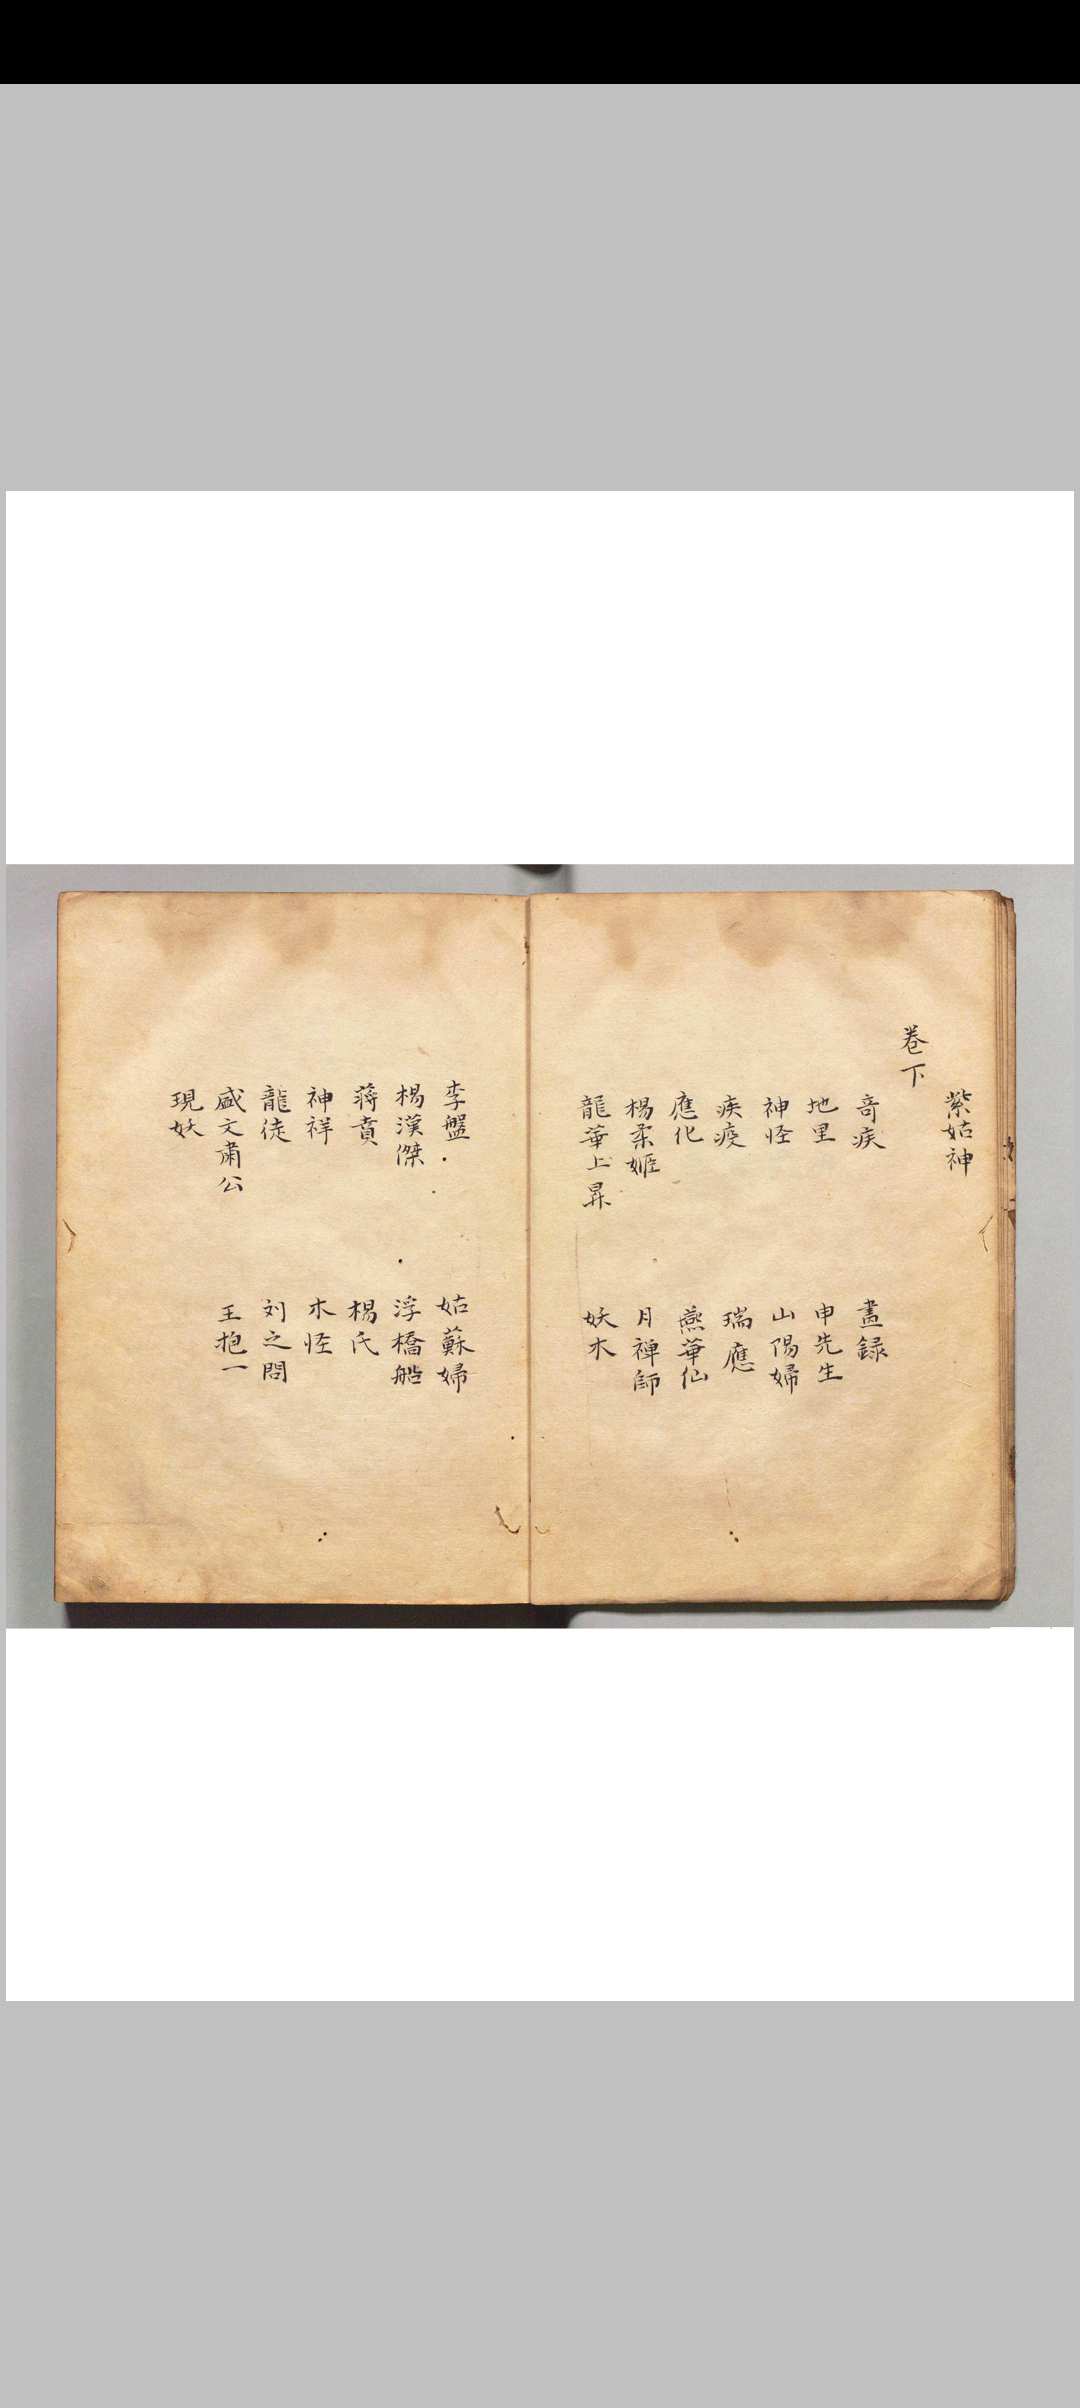 紫姑神
卷下
奇疾 畫録
地里 申先生
神怪 山陽婦
疾疫 瑞應
應化 燕華仙
楊柔姬 月禅師
龍華上昇 妖木
李盤 姑蘇婦
楊漢傑 浮橋船
蒋賁 楊氏
神祥 木怪
龍徒 刘之問
盛文肅公 王抱一
現妖